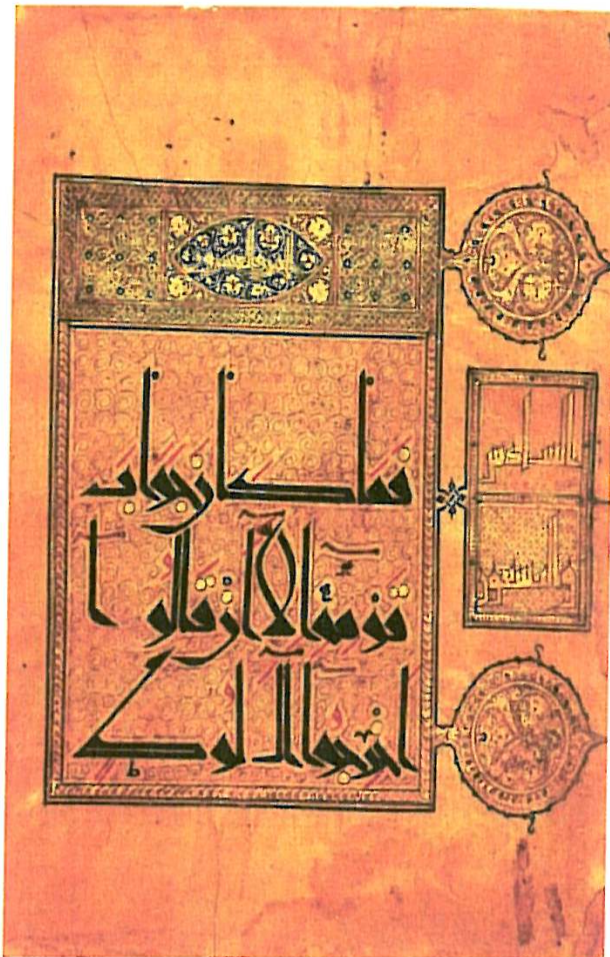 فما كان جواب
قومه الا ان قالوا
اخرجوا ال لوط